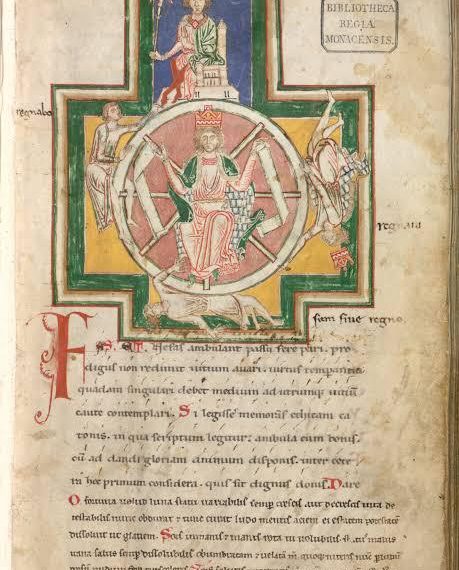 BIBLIOTHECA
REGIA
MONACENSIS.
regnabo
regnaui
sum sine regno
FAS ET Nefas ambulant passu fere pari. pro
digus non redimit uitium auari. uirtus temperantia
quadam singulari debet medium ad utrumque uitium
caute contemplari. Si legisse memoras ethicam ca
tonis. in qua scriptum legitur. ambula cum bonis.
cum ad dandi gloriam animum disponis. inter cete
ra hoc primum considera. quis sit dignus donis. Dare
O fortuna uelud luna statu uariabilis semp crescis aut decrescis uita de
testabilis nunc obdurat et tunc curat ludo mentis aciem egestatem potestatem
dissoluit ut glaciem. Sors immanis et inanis rota tu uolubilis status malus
uana salus semp dissolubilis obumbratam et uelatam quoque niteris nunc